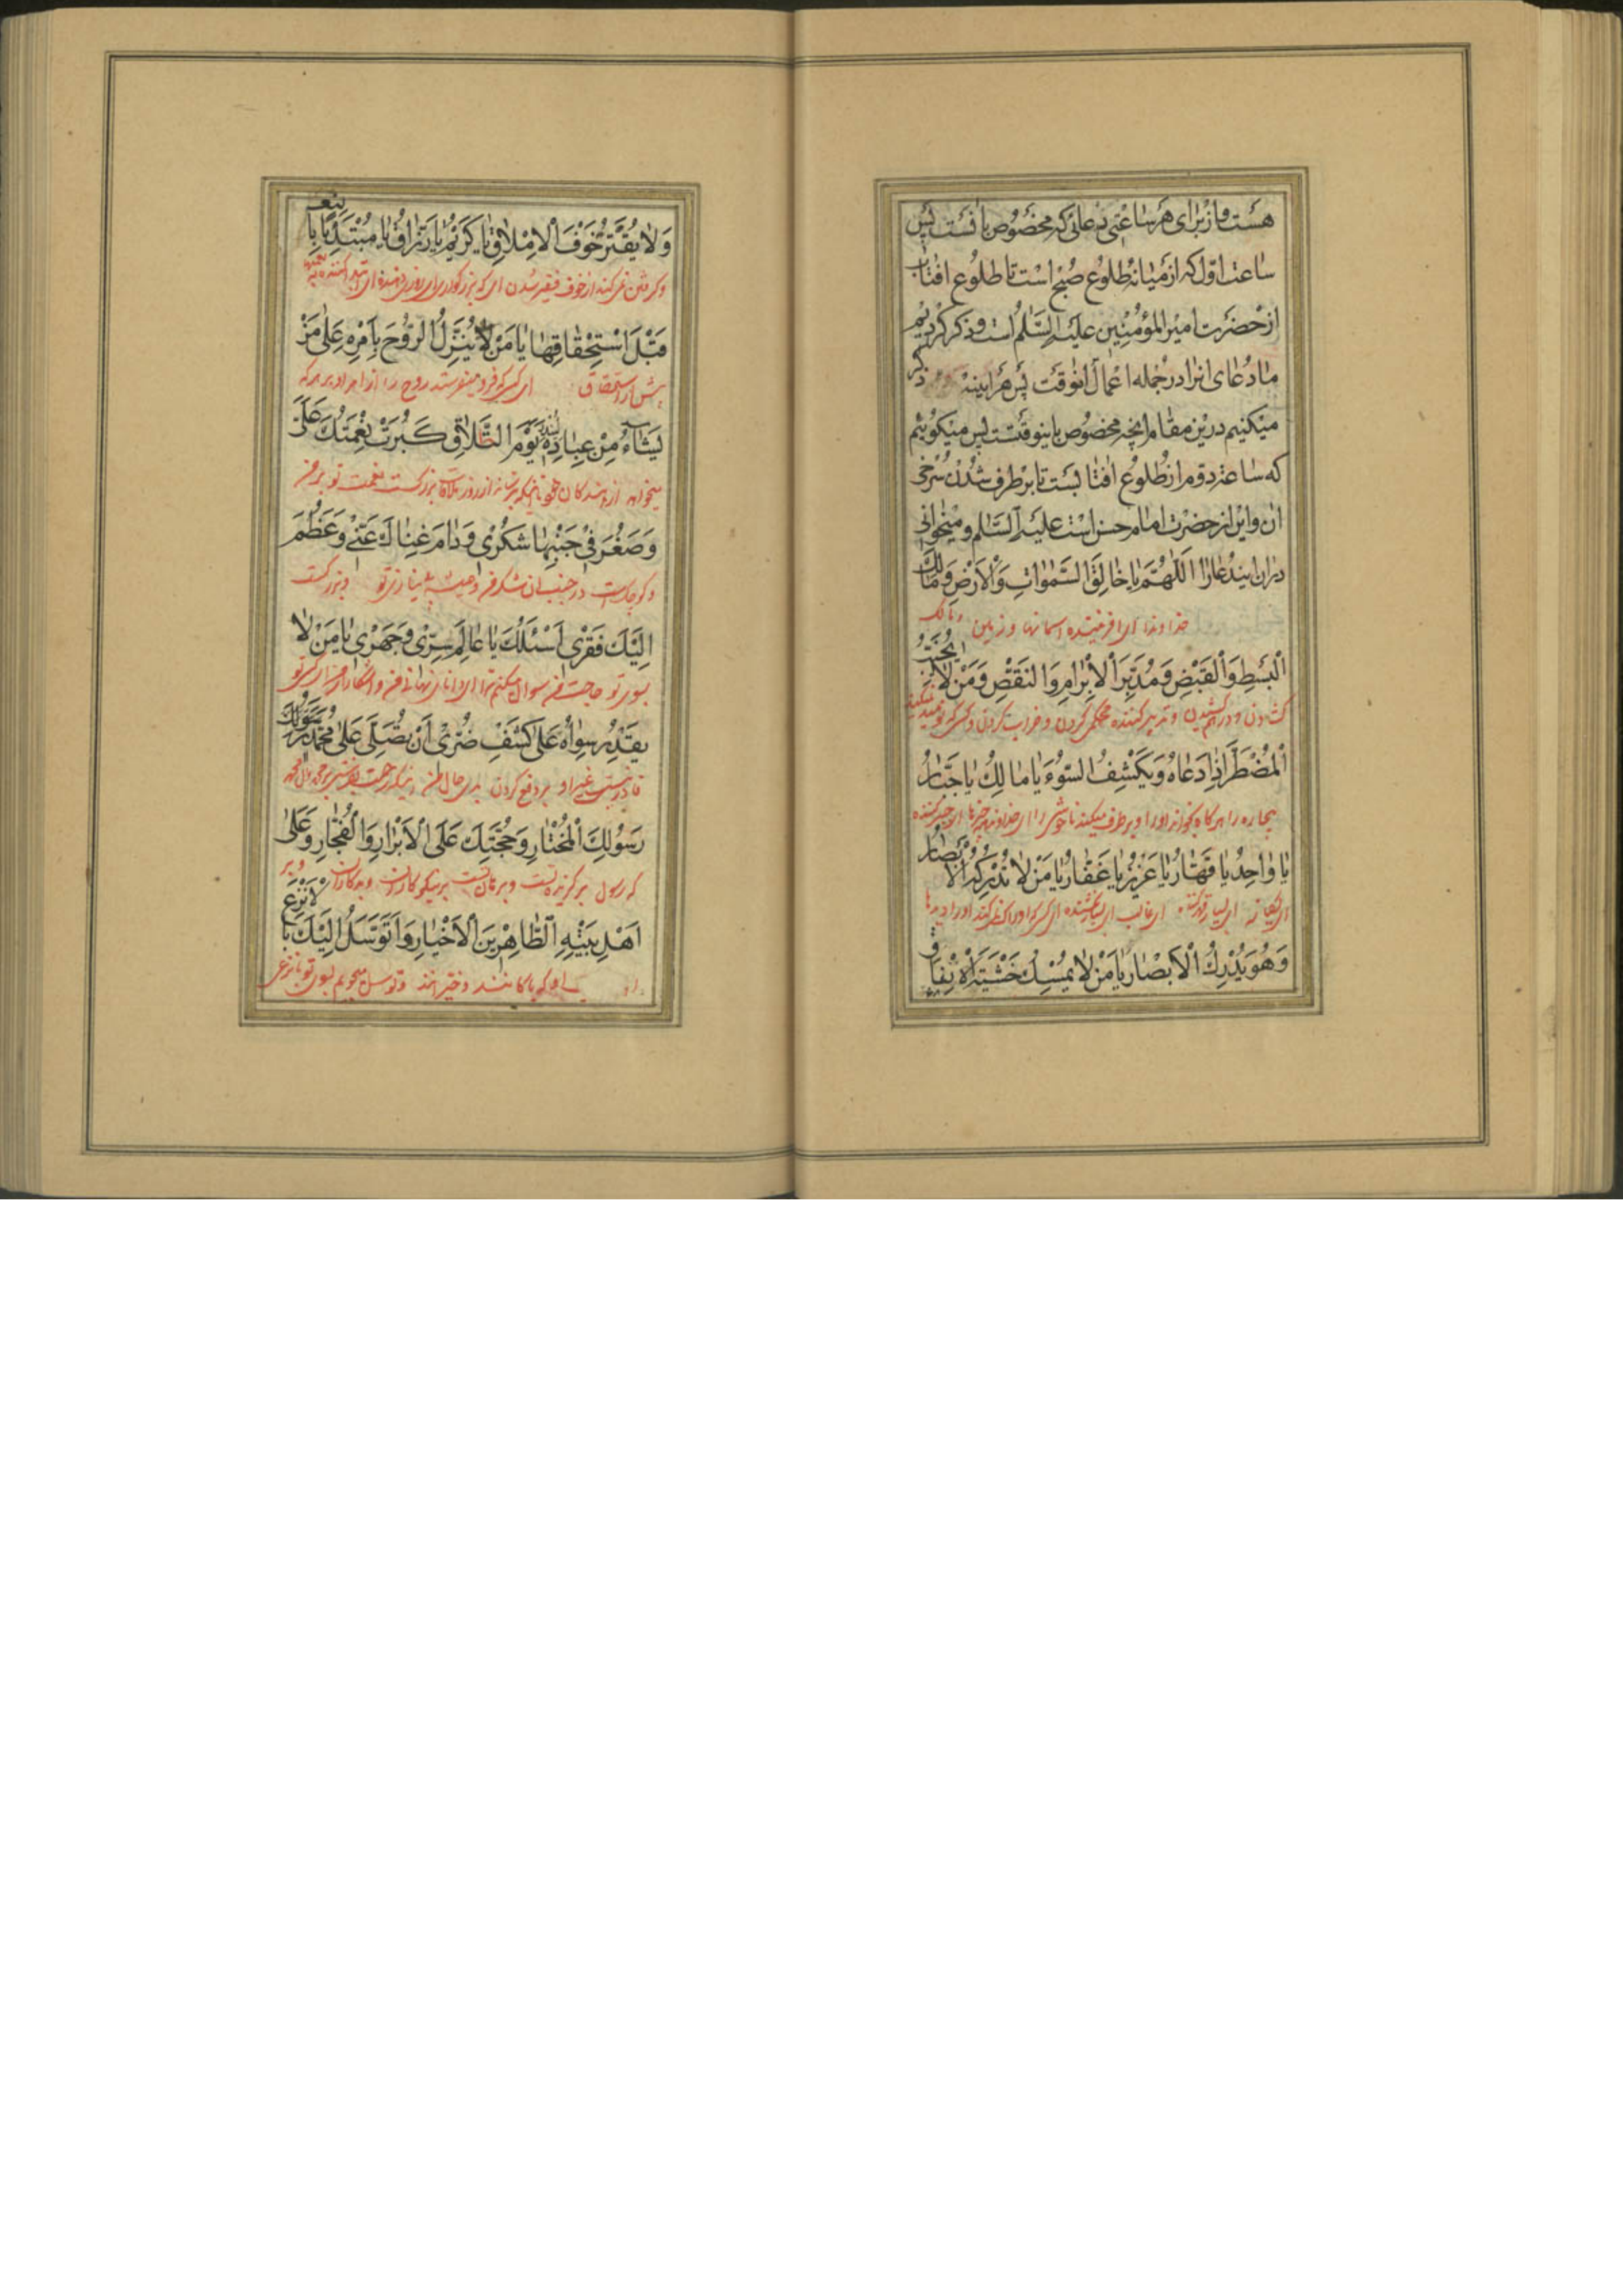 هست و از برای هر ساعتی دعائی که مخصوص بانست پس
ساعت اول که از میانه طلوع صبح است تا طلوع افتاب
از حضرت امیر المؤمنین علیه السلام است و ذکر کردیم
ما دعای انرا در جمله اعمال انوقت پس هر اینه ذکر
میکنیم درین مقام انچه مخصوص باینوقتست پس میکوئیم
که ساعت دوم از طلوع افتابست تا برطرف شدن سرخی
ان و این از حضرت امام حسن است علیه السلام و میخوانی
دران ایندعا را اَللّٰهُمَّ يٰا خٰالِقَ السَّمٰوٰاتِ وَالْاَرْضِ وَمٰالِكَ
خداوندا ای افریننده اسمانها و زمین و مالک
الْبَسْطِ وَالْقَبْضِ وَمُدَبِّرَ الْاِبْرٰامِ وَالنَقْضِ وَمَنْ لٰا يُخَيِّبُ
و درهم کشیدن و تدبیر کننده محکم کردن و خراب کردن و کسی که نومید نمیکند
الْمُضْطَرَّ اِذٰا دَعٰاهُ وَيَكْشِفُ السُّوْءَ يٰا مٰالِكُ يٰا جَبّٰارُ
بیچاره را هرکاه بخواند او را و برطرف میکند ناخوشی را ای
يٰا وٰاحِدُ يٰا قَهّٰارُ يٰا عَزِيْزُ يٰا غَفّٰارُ يٰا مَنْ لٰا تُدْرِكُهُ الْاَبْصٰارُ
ای یکانه ای غالب ای
وَهُوَ يُدْرِكُ الْاَبْصٰارَ يٰا مَنْ لٰا يُمْسِكُ خَشْيَةَ الْاِنْفٰاقِ
وَلٰا يُقَتِّرُ خَوْفَ الْاِمْلٰاقِ يٰا كَرِيْمُ يٰا رَزّٰاقُ يٰا مُبْتَدِئًا بِالنِّعَمِ
نمی کند از خوف فقیر شدن ای که بزرکواری ای روزی دهنده ای ابتدا کننده به نعمتها
قَبْلَ اسْتِحْقٰاقِهٰا يٰا مَنْ يُنَزِّلُ الرُّوْحَ بِاَمْرِهِ عَلٰى مَنْ
پیش از استحقاق ای کسی که فرو میفرستد روح را از امر او بر هر که
يَشٰاءُ مِنْ عِبٰادِهِ لِيُنْذِرَ يَوْمَ التَّلٰاقِ كَبُرَتْ نِعْمَتُكَ عَلَيَّ
میخواهد از بندکان خود از روز ملاقات بزرکست نعمت تو بر من
وَصَغُرَ فِيْ جَنْبِهٰا شُكْرِيْ وَدٰامَ غِنٰاكَ عَنِّيْ وَعَظُمَ
و کوچکست در جنب ان شکر من و همیشه و بزرکست
اِلَيْكَ فَقْرِيْ اَسْئَلُكَ يٰا عٰالِمَ سِرِّيْ وَجَهْرِيْ يٰا مَنْ لٰا
بسوی تو حاجت من سوال میکنم ترا ای دانای نهانی من و اشکارا
يَقْدِرُ سِوٰاهُ عَلٰى كَشْفِ ضُرِّيْ اَنْ تُصَلِّيَ عَلٰى مُحَمَّدٍ رَسُوْلِكَ
قادر نیست غیر او بر دفع کردن بدی حال من
رَسُوْلِكَ الْمُخْتٰارِ وَحُجَّتِكَ عَلَى الْاَبْرٰارِ وَالْفُجّٰارِ وَعَلٰى
که رسول برکزیده تست و برهان تست بر نیکوکاران و بدکاران و بر
اَهْلِ بَيْتِهِ الطّٰاهِرِيْنَ الْاَخْيٰارِ وَاَتَوَسَّلُ اِلَيْكَ بِالْاَنْزَعِ
او که پاکانند و توسل میجویم بسوی تو